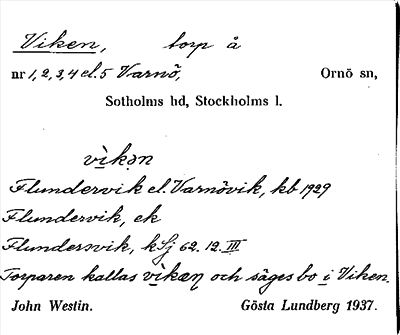 Viken, torp å
nr 1, 2, 3, 4 el. 5 Varnö, Ornö sn,
Sotholms hd, Stockholms l.
vìkən
Flundervik el. Varnövik, kb 1929
Flundervik, ek
Flundersvik, kSj 62. 12. III
Torparen kallas vìkəη och säges bo i Viken.
John Westin. Gösta Lundberg 1937.